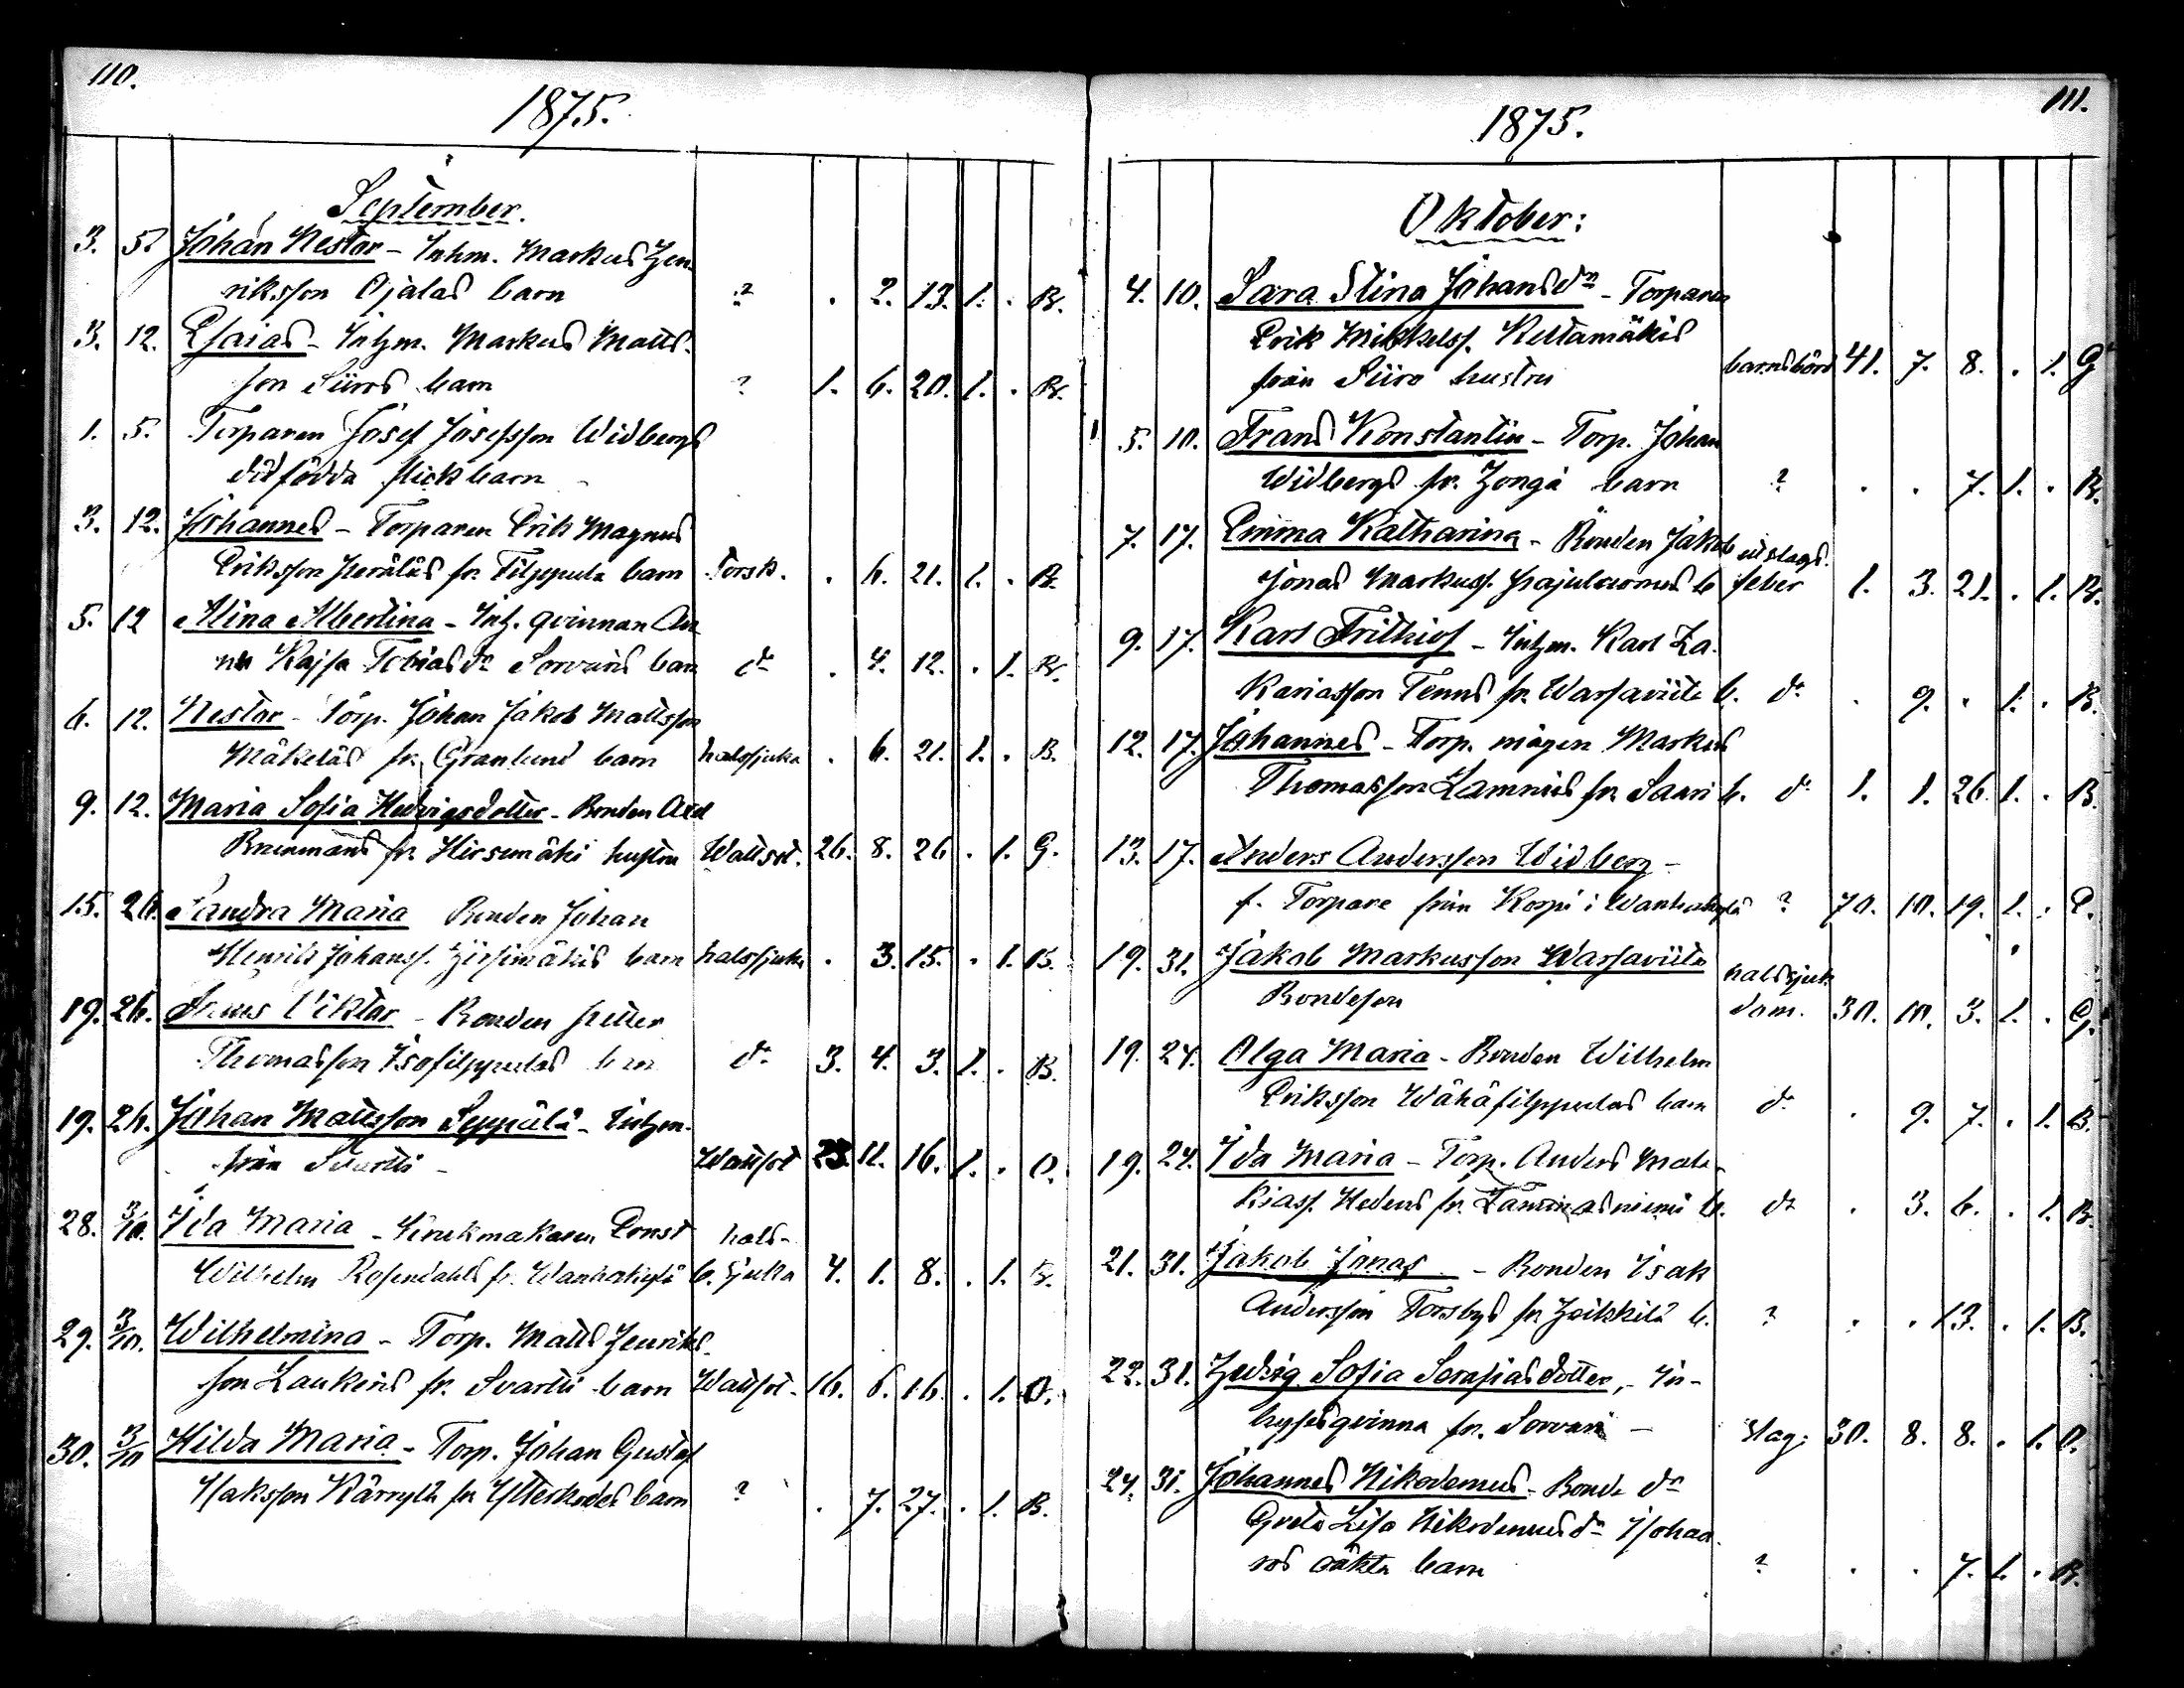 110.
1875.
September.
3. 5. Johan Nestor - Inhm. Markus Hen-
riksson Ojalas barn ? . 2. 13. 1. . B.
3. 12. Esaias - Inhm. Markus Matts-
son Siiros barn ? 1. 6. 20. 1. . B.
1. 5. Torparen Josef Josefsson Widbergs
dödfödda flickbarn -
3. 12. Johannes - Torparen Erik Magnus
Eriksson Perälas fr. Filppula barn Torsk. . 6. 21. 1. . B.
5. 12 Alina Albertina - Inh. qvinnan An
na Kajsa Tobiasdr Sorvaris barn do . 4. 12. . 1. B.
6. 12. Nestor - Torp. Johan Jakob Mattsson
Mäkeläs fr. Granlund barn halssjuka . 6. 21. 1. . B.
9. 12. Maria Sofia Hedvigsdotter - Bonden Axel
fr. Hirsimäki hustru Wattsot. 26. 8. 26 . 1. G.
15. 26. Sandra Maria Bonden Johan
Henrik Johanss. Hirsimäkis barn halssjuka . 3. 15. . 1. B.
19. 26. Frans Viktor - Bonden Petter
Thomasson Isofilppulas barn do 3. 4. 3. 1. . B.
19. 26. Johan Mattsson Seppälä - Inhm.
från Svartti - Wattsot 23. 11. 16. 1. . O.
28. 3/10. Ida Maria - Krukmakaren Ernst hals-
Wilhelm Rosendahls fr. Wanhakylä b. sjuka 4. 1. 8. . 1. B.
29. 3/10. Wilhelmina - Torp. Matts Henriks-
son Laukens fr. Svartti barn Wattsot - 16. 6. 16. . 1. O.
30. 3/10 Hilda Maria - Torp. Johan Gustaf
Isaksson Kärrylä fr. barn ? . 7. 27. . 1. B.
111.
1875.
Oktober:
4. 10. Sara Stina Johansdr - Torparen
Erik Mikkelss. Keltamäkis
från Siiro hustru barnsbörd 41. 7. 8. . 1. G
5. 10. Frans Konstantin - Torp. Johan
Widbergs fr. Honga barn ? . . 7. 1. . B.
7. 17. Emma Katharina - Bonden Jakob utslags-
Jonas Markuss. Pajuluomas b feber 1. 3. 21. . 1. B.
9. 17. Karl Frithiof - Inhm. Karl Za-
kariasson Tenns fr. Warsaviita b. do . 9. . 1. . B.
12. 17. Johannes - Torp. mågen Markus
Thomasson Lamnis fr. Saari b. do 1. 1. 26. 1. . B.
13. 17. Anders Andersson Widberg -
f. Torpare från Korpi i Wanhakylä ? 70. 10. 19. 1. . E.
19. 31. Jakob Markusson Warsaviita halssjuk-
Bondeson dom. 30. 10. 3. 1. . G.
19. 24. Olga Maria - Bonden Wilhelm
Eriksson Wähäfilppulas barn do . 9. 7. . 1. B.
19. 24. Ida Maria - Torp. Anders Mala-
kiass. Hedens fr. b. do . 3. 6. . 1. B.
21. 31. Jakob Jonas - Bonden Isak
Andersson Forsbys fr. Heikkilä b. ? . . 13. . 1. B.
22. 31. Hedvig Sofia Serafiasdotter, - In-
hyses qvinna fr. Sorvari - Slag. 30. 8. 8. . 1. O.
24. 31. Johannes Nikodemus - Bonde dr
Greta Lisa Nikodemusdr Isohan-
nos oäkta barn ? . . 7. 1. . B.